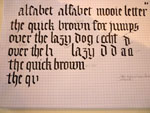 alfabet alfabet mooie letter
the quick brown fox jumps
over the lazy dog c echt d
over the h lazy d d a
the quick brown
the qu